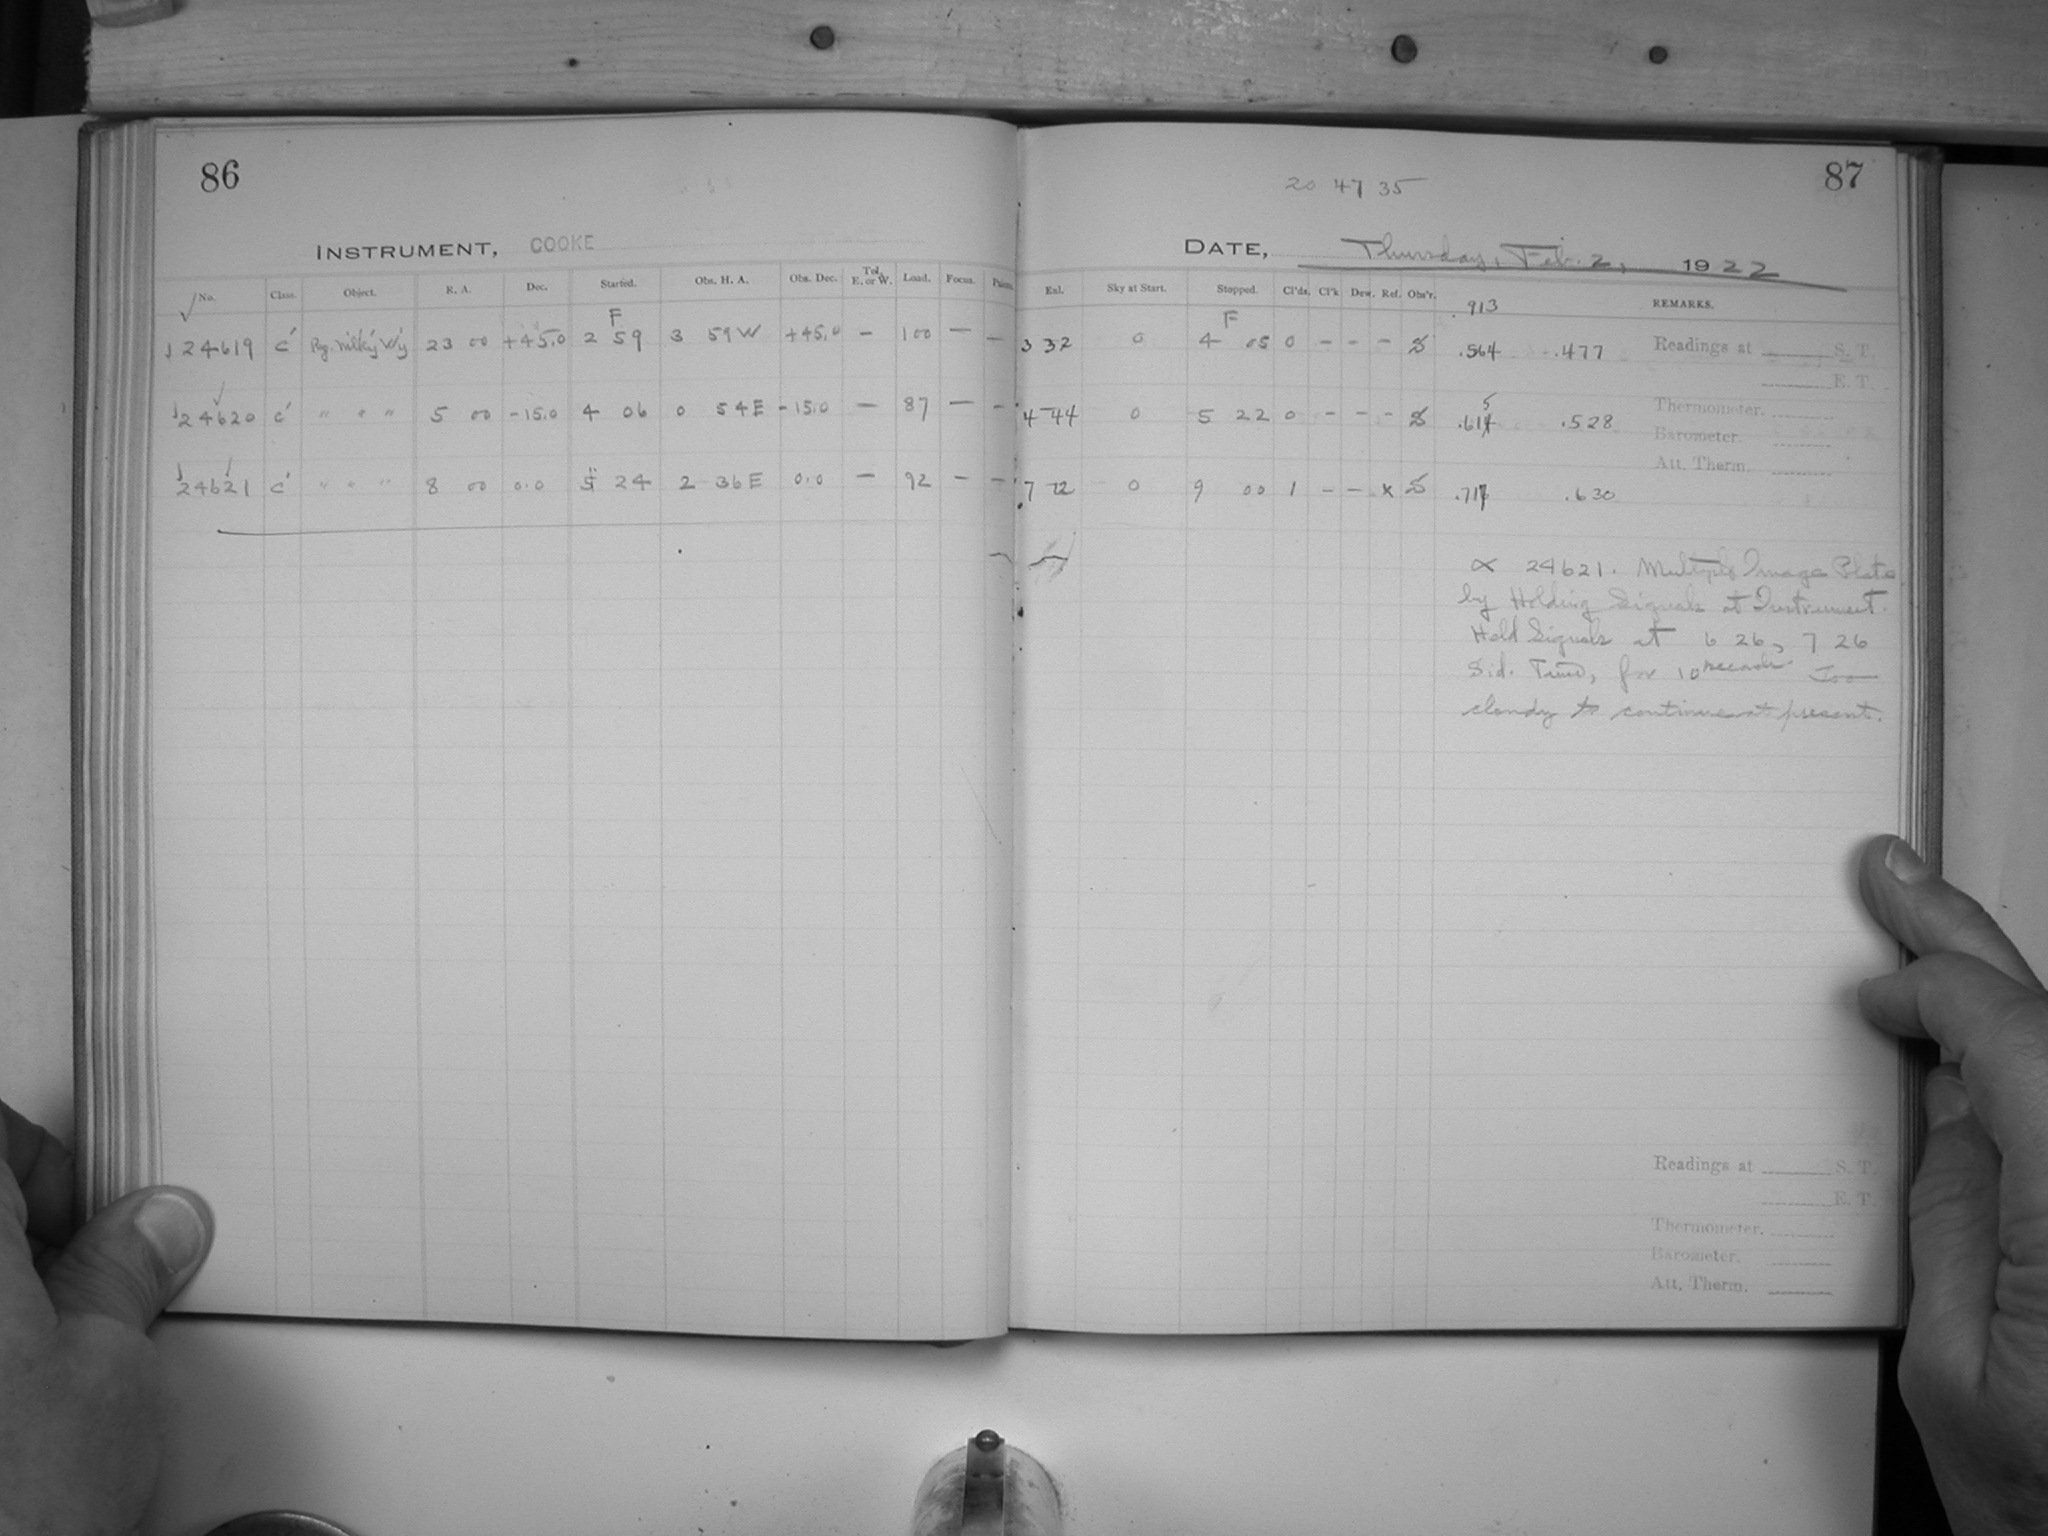 86
INSTRUMENT, COOKE
No. Class. Object. R. A. Dec. Started. Obs. H. A. Obs. Dec. Tel. E. or W. Load. Focus.
24619 C' Rg. Milky Wy 23 00 +45.0 F 2 59 3 59 W +45.0 — 100 — —
24620 C' " " " 5 00 -15.0 4 06 0 54 E -15.0 — 87 — —
24621 C' " " " 8 00 0.0 24 2 36 E 0.0 — 92 — —
87
20 47 35
DATE, Thursday, Feb. 2, 1922
Exl. Sky at Start. Stopped. Cl'ds. Cl'k Dew. Ref. Obs'r. .913 REMARKS.
3 32 0 F 4 05 0 - - - S .564 .477
4 44 0 5 22 0 - - - S .615 .528
7 12 0 9 00 1 - - x S .717 .630
Readings at S. T.
E. T.
Thermometer.
Barometer.
Att. Therm.
∝ 24621. Multiple Image Plate
by Holding Signals at Instrument.
Held Signals at 6 26, 7 26
Sid. Time, for 10 seconds. Too
cloudy to continue at present.
Readings at S. T.
E. T.
Thermometer.
Barometer.
Att. Therm.